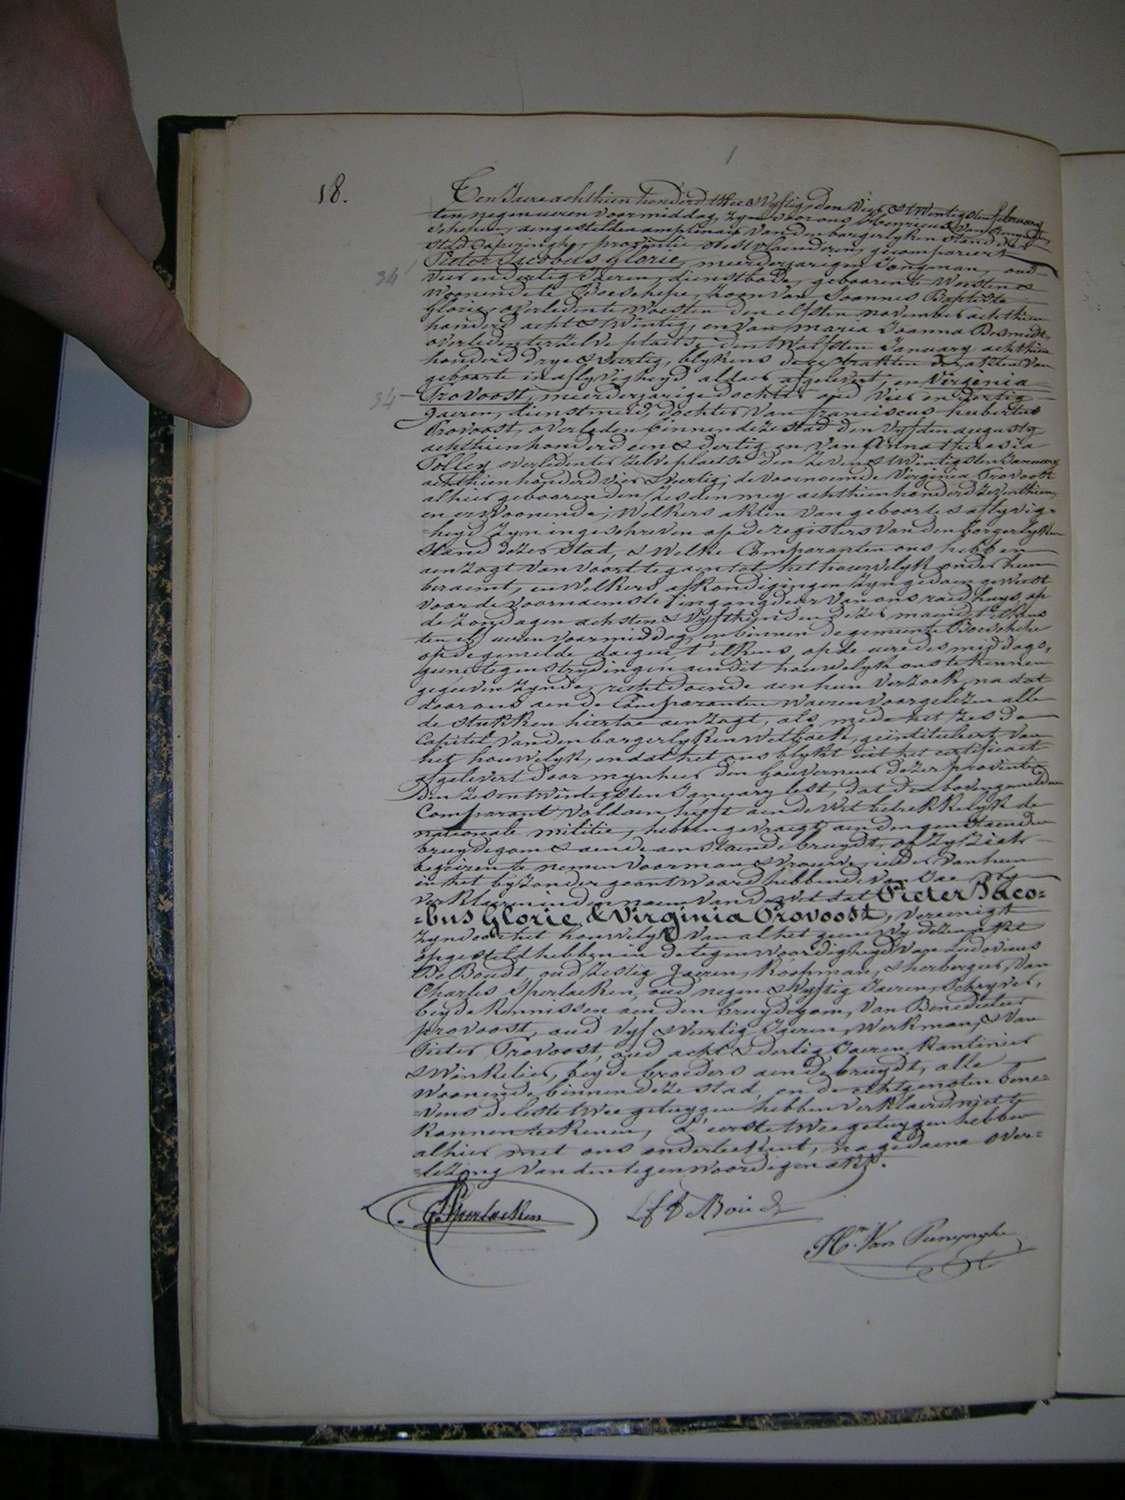 18.
Ten Jaere achthien honderd twee & Vyftig, den Vyf & twintigsten february
ten negen uren voormiddag, zyn voor ons Henricus Van
Schepene, aengestelden van den borgerlyken stand der
Stad Poperinghe, provintie West vlaenderen, gecompareert
Pieter Jacobus Glorie, meerderjarigen Jongman, oud
34
Vier en dertig Jaeren, dienstbode, geboren te Woesten &
Woonende te Boeschepe, zoon van Joannes Baptiste
Glorie overleden te Woesten den elfsten november achthien
honderd acht & twintig, en van Maria Joanna Desmidt
overleden ter zelve plaetse den twalfsten January achthien
honderd drye & veertig, blykens de extrakten der akten van
geboorte en aflyvigheyd aldaer afgelevert, en Virginia
34
Provoost, meerderjarige dochter oud vier en dertig
Jaeren, dienstmeid, dochter van franciscus hubertus
Provoost, overleden binnen deze stad den vyfden augusty
achthien honderd een & dertig, en van Anna theresia
Follez overleden ter zelve plaetse den zeven & twintigsten January
achthien honderd vier & veertig; de voornoemde Virginia Provoost
alhier geboren den zesden mey achthien honderd zeventhien,
en er woonende; Welkers akten van geboorte & aflyvig-
heyd zyn ingeschreven op de registers van den borgerlyken
Stand dezer Stad, & Welke Comparanten ons hebben
aenzogt van voort te gaen tot het houwelyk onder hun
beraemt, en Welkers afkondigingen zyn gedaen geweest
voor de voornaemste ingangdeur van ons raedhuys, op
de zondagen achsten & vyfthienden dezer maend t'elkens
ten elf uren voormiddag, en binnen de gemeente Boeschepe
op de gemelde daegen t'elkens, op de ure des middags,
geene tegenstrydingen aen dit houwelyk ons te kennen
gegeven zynde, recht doende aen hun verzoek, na dat
door ons aen de Comparanten waeren voorgelezen alle
de stukken hiertoe aenzogt, als mede het zesde
Capitel van den borgerlyken Wetboek, geintituleert van
het houwelyk, en dat het ons blykt uit het certificaet
afgelevert door mynheer den Gouverneur dezer provintie
den zes en twintigsten January lest, dat den bovengemelden
Comparant voldaen heeft aen de Wet betrekkelyk de
nationale militie, hebben gevraegt aen den aenstaenden
bruydegom & aen de aenstaende bruydt, of zy zich
begeiren te nemen voor man & vrouwe, ieder van hun
in het byzonder geantwoord hebbende van Jae,
verklaeren in den naem van de wet dat Pieter Jaco-
-bus Glorie, & Virginia Provoost, vereenigt
zyn door het houwelyk Van al het geene wy dezen akt
opgesteld hebben in de tegenwoordigheyd van Ludovicus
De Boudt, oud zestig Jaeren, Koopman, & herbergier, Van
Charles Sperlaeken, oud negen & vyftig Jaeren, schryver,
beyde kennissen aen den bruydegom, van Benedictus
provoost, oud vyf & veertig Jaeren, Werkman, & van
Pieter Provoost, oud acht & dertig Jaeren kantinier
& Winkelier, beyde broeders aen de bruydt, alle
Woonende binnen deze stad, en de echtgenoten bene-
-vens de leste twee getuygen hebben verklaerd niet te
konnen teekenen, d'eerste twee getuygen hebben
alhier met ons onderteekent, na gedaene over-
-lezing van den tegenwoordigen akt.
C. Sperlaeken